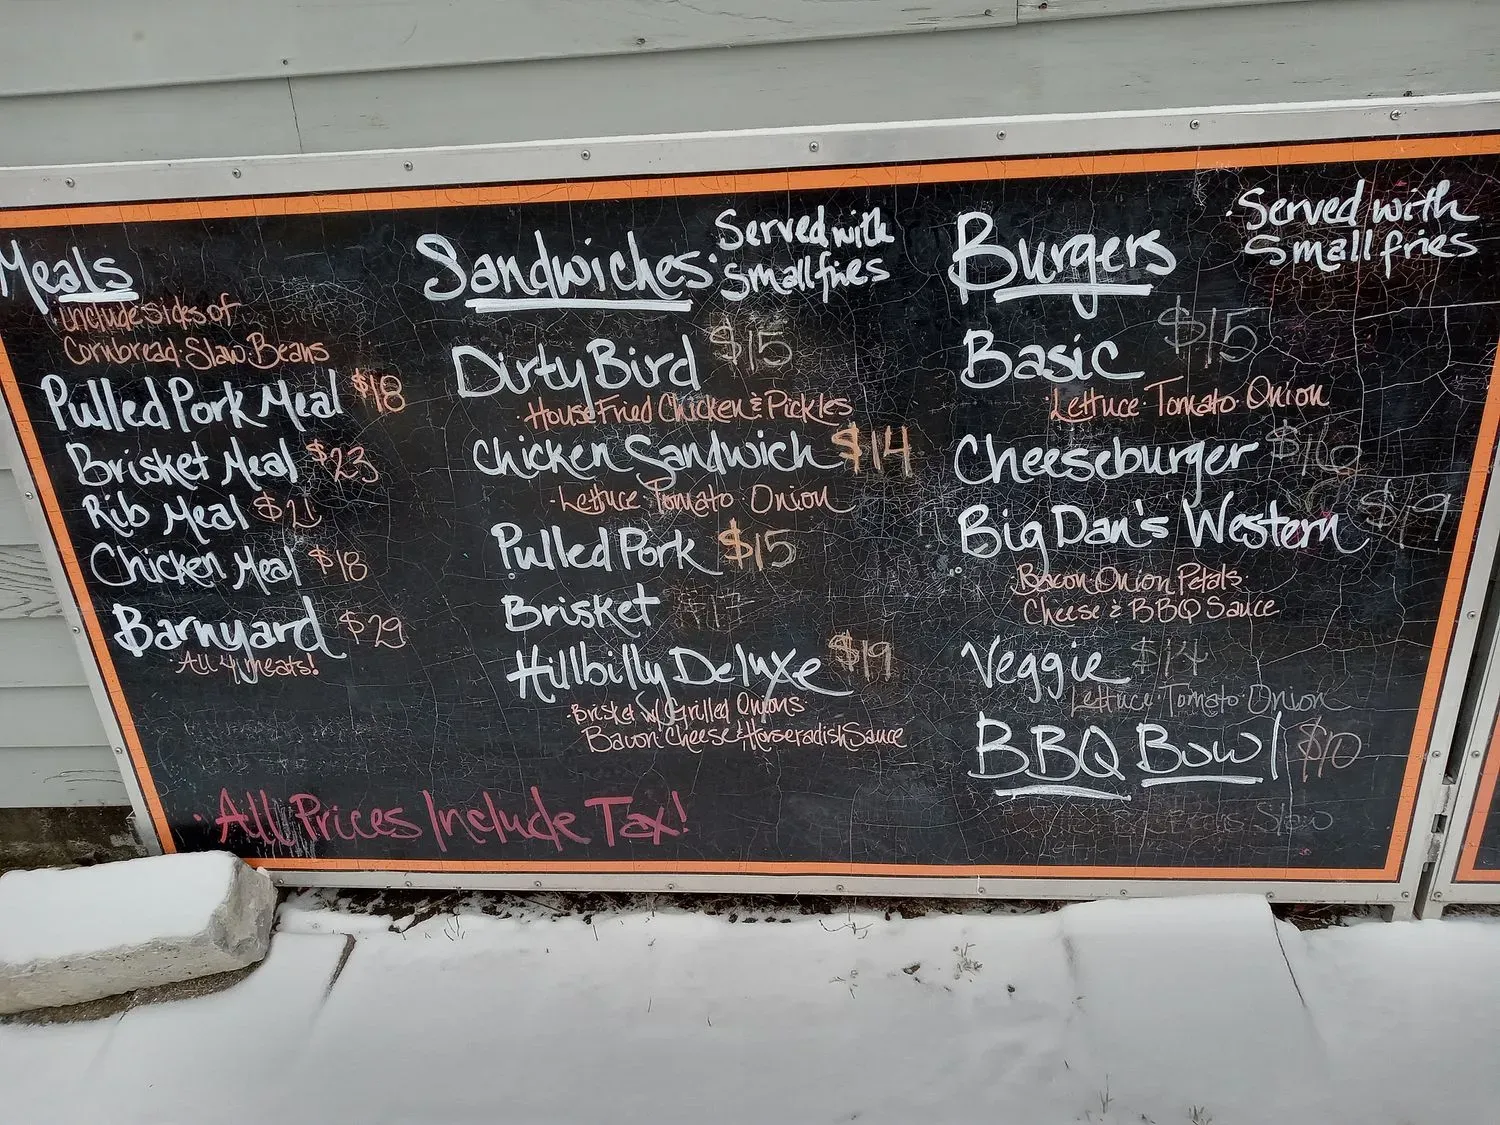 Meals
include sides of
Cornbread·Slaw·Beans
Pulled Pork Meal $18
Brisket Meal $23
Rib Meal $21
Chicken Meal $18
Barnyard $29
·All 4 meats!
Sandwiches·Served with
Small fries
Dirty Bird $15
·House Fried Chicken & Pickles
Chicken Sandwich $14
·Lettuce·Tomato Onion
Pulled Pork $15
Brisket $17
Hillbilly Deluxe $19
·Brisket w/ Grilled Onions·
Bacon·Cheese & Horseradish Sauce
Burgers ·Served with
Small fries
Basic $15
·Lettuce·Tomato·Onion
Cheeseburger $16
Big Dan's Western $19
Bacon·Onion Petals·
Cheese & BBQ Sauce
Veggie $14
Lettuce·Tomato·Onion
BBQ Bowl $10
Slaw
·All Prices Include Tax!